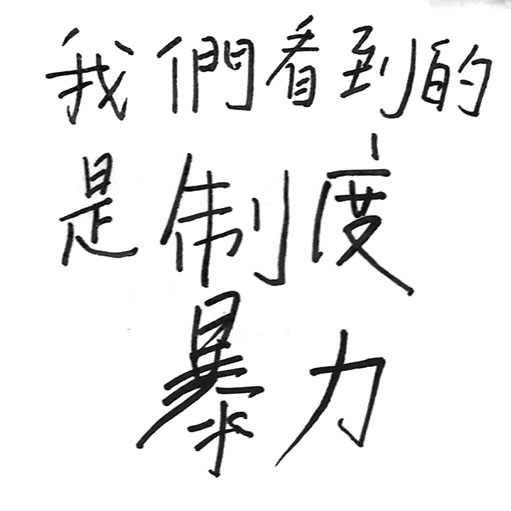 我們看到的
是制度
暴力